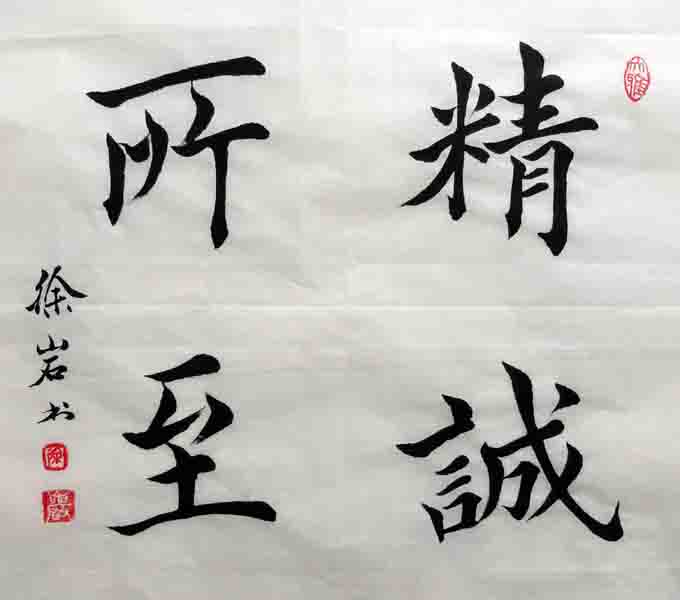 精誠
所至
徐岩书